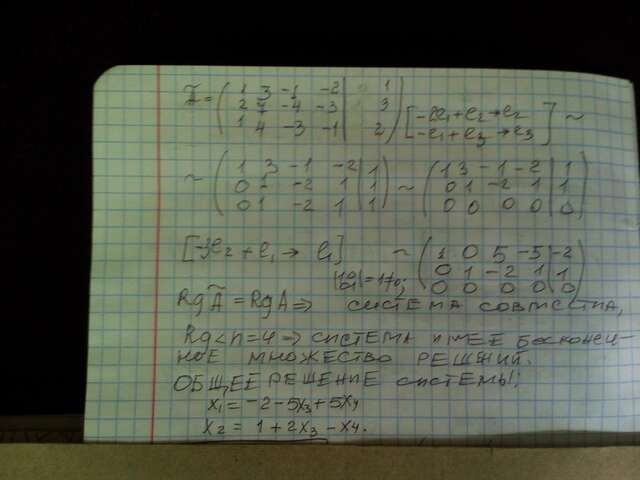 Ã = ( 1 3 -1 -2 | 1
2 7 -4 -3 | 3
1 4 -3 -1 | 2 ) [ -2l₁+l₂→l₂
-l₁+l₃→l₃ ] ~
~ ( 1 3 -1 -2 | 1
0 1 -2 1 | 1
0 1 -2 1 | 1 ) ~ ( 1 3 -1 -2 | 1
0 1 -2 1 | 1
0 0 0 0 | 0 )
[-3l₂+l₁→ l₁] ~ ( 1 0 5 -5 | -2
0 1 -2 1 | 1
0 0 0 0 | 0 )
|10
01| = 1≠0;
Rg Ã = Rg A ⇒ СИСТЕМА СОВМЕСТНА,
Rg < n=4 ⇒ СИСТЕМА ИМЕЕ БЕСКОНЕЧ-
НОЕ МНОЖЕСТВО РЕШЕНИЙ.
ОБЩЕЕ РЕШЕНИЕ СИСТЕМЫ:
x₁ = -2-5x₃+5x₄
x₂ = 1+2x₃-x₄.